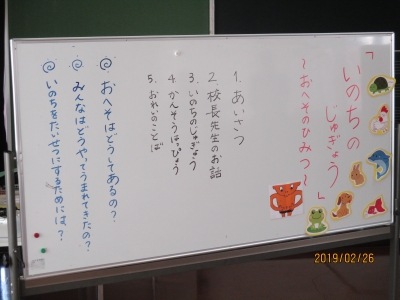 「いのちの
じゅぎょう」
～おへそのひみつ～
1. あいさつ
2. 校長先生のお話
3. いのちのじゅぎょう
4. かんそうはっぴょう
5. おれいのことば
おへそはどうしてあるの？
みんなはどうやってうまれてきたの？
いのちをたいせつにするためには？
2019/02/26